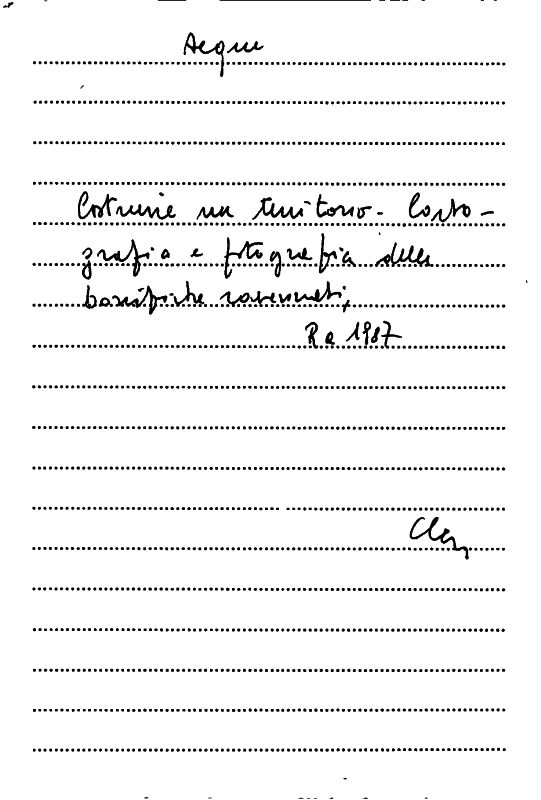 Acque
Costruire un territorio. Carto-
grafia e fotografia delle
bonifiche ravennati,
Ra 1987